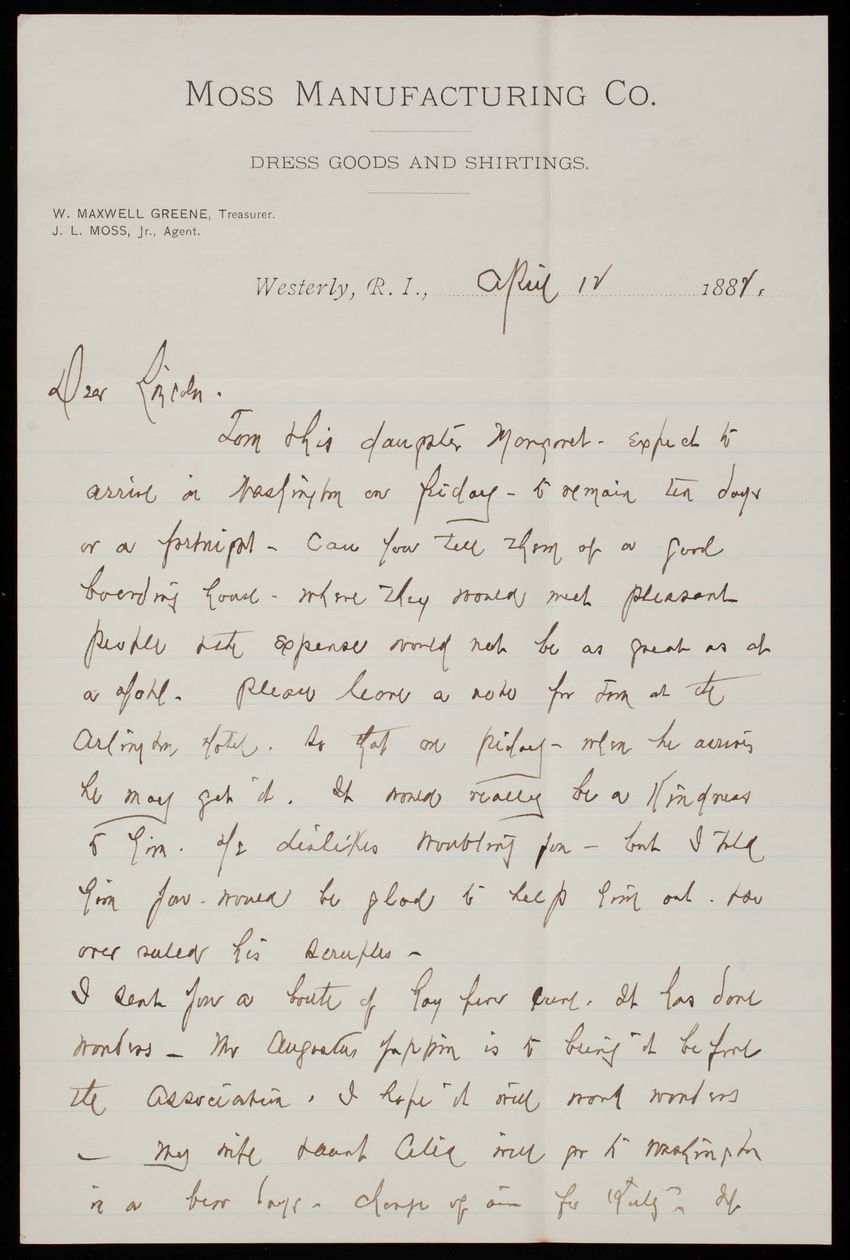 MOSS MANUFACTURING CO.
DRESS GOODS AND SHIRTINGS.
W. MAXWELL GREENE, Treasurer.
J. L. MOSS, Jr., Agent.
Westerly, R. I., April 12 1882.
Dear Lincoln.
Tom & his daughter Margaret - expect to
arrive in Washington on Friday - to remain ten days
or a fortnight - Can you tell them of a good
boarding house - where they would meet pleasant
people & the expense would not be as great as at
a Hotel. Please leave a note for Tom at the
Arlington Hotel. So that on Friday - when he arrives
he may get it. It would really be a Kindness
to him. He dislikes troubling you - but I told
him you - would be glad to help him out. &
over ruled his scruples -
I sent you a bottle of hay fever cure. It has done
wonders - Mr Augustus is to bring it before
the Association. I hope it will work wonders
- My wife & aunt Celia will go to Washington
in a few days - change of air for If